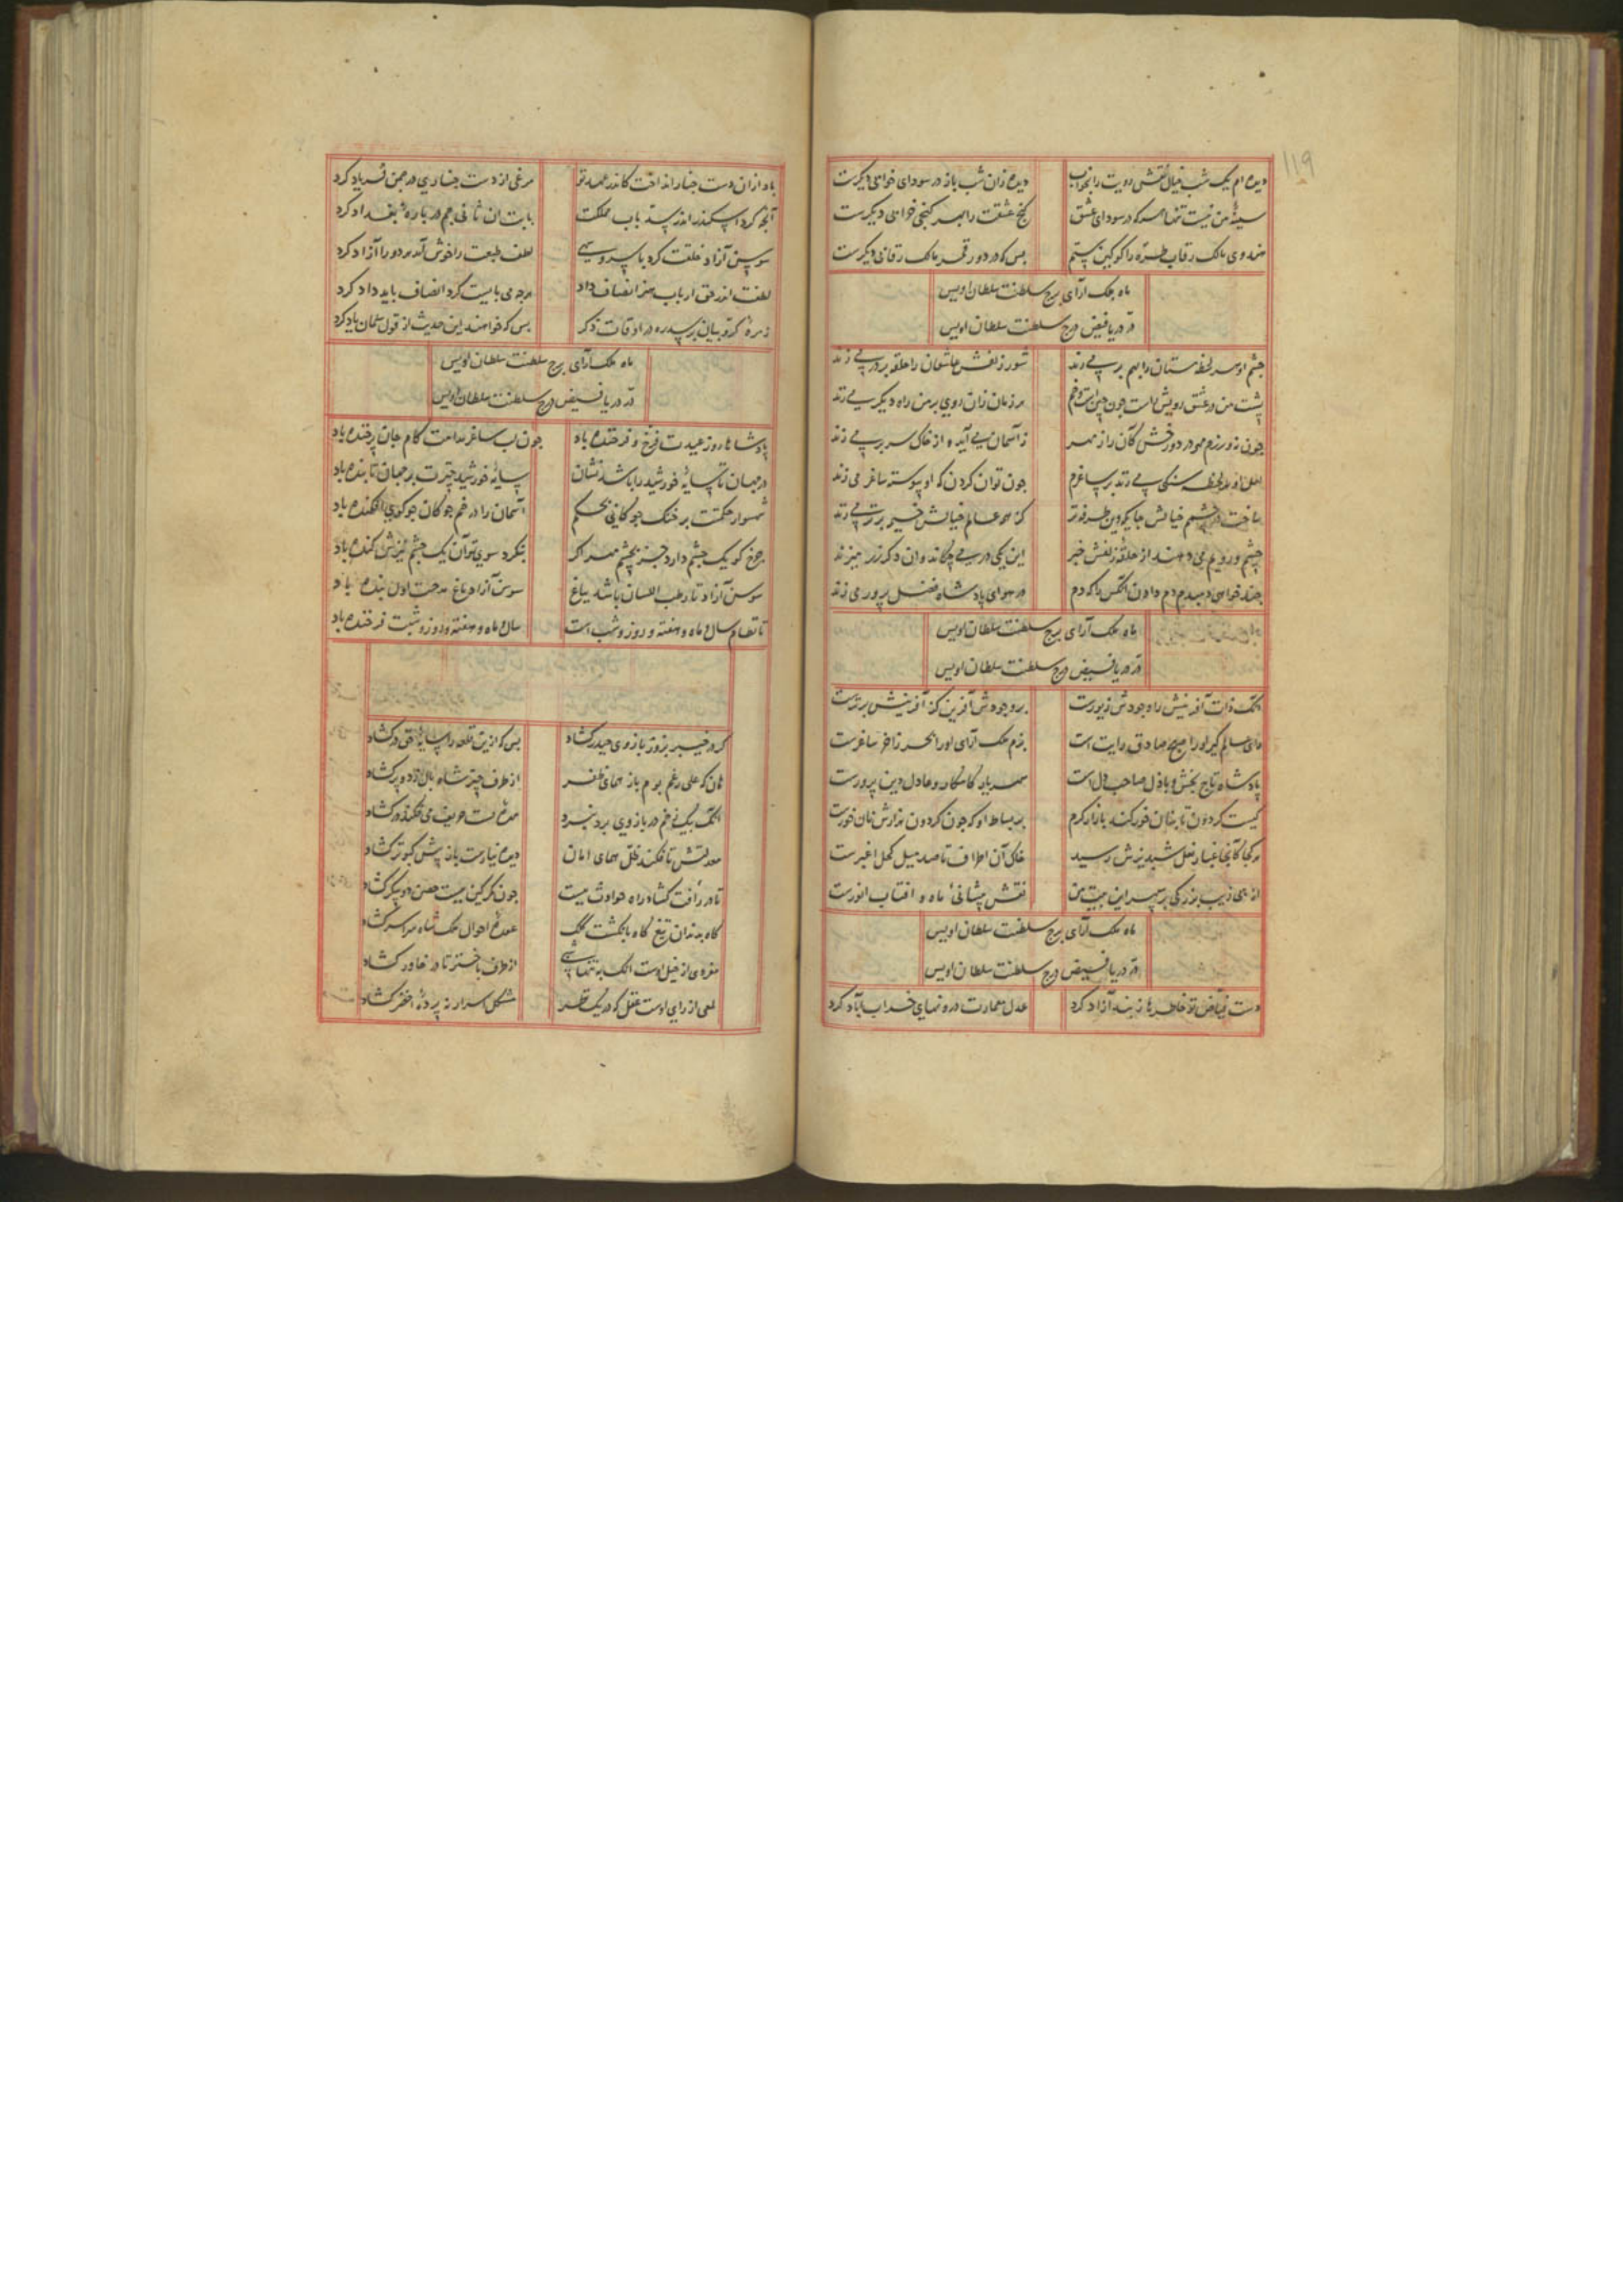 119
دیده ام یک شب خیال نقش رویت را بخواب دیده زان شب باز در سودای خوابی دیکرست
سینهٔ من نیست تنها مهر که در سودای عشق کنج عشقت را بهر کنجی خرابی دیکرست
هندوی مالک رقاب طره را کو کین ستم بس که در دور قمر مالک رقابی دیکرست
ماه ملک آرای برج سلطنت سلطان اویس
در دریا فیض درج سلطنت سلطان اویس
چشم او هر لحظه مستان را بهم بر می زند شور زلفش عاشقان را حلقه بر در می زند
پشت من در عشق رویش راست چون چنکست و خم هر زمان زان روی بر من راه دیکر می زند
چون زور زرم مهر در دور رخش کان را ز مهر ز آسمان می آید و از خاک سر بر می زند
لعل او هر لحظه سنکی می زند بر ساغرم چون توان کردن که او پیوسته ساغر می زند
ساخت در چشمم خیالش جا که وین طرفه تر کز همه عالم خیالش خیمه برتر می زند
چشم و رویم می دهند از حلقهٔ زلفش خبر این یکی در می چکاند وان دکر زر میزند
چند خواهی دمبدم دم دادن آنکس را که دم در هوای پادشاه فضل پرور می زند
ماه ملک آرای برج سلطنت سلطان اویس
در دریا فیض درج سلطنت سلطان اویس
آنک ذات آفرینش را وجودش زیورست بر وجودش آفرین کز آفرینش برترست
رای عالم کیر او را صبح صادق رایت است بزم ملک آرای او را بحر زاخر ساغرست
پادشاه تاج بخش و باذل صاحب دل است شهریار کامکار و عادل دین پرورست
کیست کردون تا بنان خور کند بازار کرم بر بساط او که چون کردون هزارش نان خورست
هر کجا کانجا غبار نعل شبدیزش رسید خاک آن اطراف تا صد میل کحل اغبرست
از پی زیب بزرکی بر سپهر این بیت من نقش پیشانیٔ ماه و آفتاب انورست
ماه ملک آرای برج سلطنت سلطان اویس
در دریا فیض درج سلطنت سلطان اویس
دست فیاض تو خاطرها ز بند آزاد کرد عدل معمارت درو نهای خراب آباد کرد
باد ازان دست چنار انداخت کاندر عهد تو مرغی از دست چناری در چمن فریاد کرد
آنچ کرد اسکندر اندر سد باب مملکت بابت ان ثانی جم در باره بغداد کرد
سوسن آزاد خلقت کرد با سرو سهی لطف طبعت را خوش آمد هر دو را آزاد کرد
لطفت اندر حق ارباب هنر انصاف داد هرچه می بایست کرد انصاف باید داد کرد
زمرهٔ کروبیان بر سدره در اوقات ذکر بس که خواهند این حدیث از قول سلمان یاد کرد
ماه ملک آرای برج سلطنت سلطان اویس
در دریا فیض درج سلطنت سلطان اویس
پادشاها روز عیدت فرخ و فرخنده باد چون لب ساغر مدامت کام جان پر خنده باد
در جهان تا سایهٔ خورشید را باشد نشان سایهٔ خورشید چترت بر جهان تابنده باد
شهسوار حکمت بر خنک چوکانی بحکم آسمان را در خم چوکان چو کوی افکنده باد
چرخ کو یک چشم دارد جز بچشم مهر اکر بنکرد سوی تو آن یک چشم نیزش کنده باد
سوسن آزاد تا رطب اللسان باشد بباغ سوسن آزاد باغ مدحت اول بنده باد
تا نظام سال و ماه و هفته و روز و شب است سال و ماه و هفته و روز و شبت فرخنده باد
کر در خیبر بزور بازوی حیدر کشاد بس که ازین قلعه را سایهٔ حق در کشاد
تا که علی رغم بوم باز همای ظفر از طرف چتر شاه بال زد و پر کشاد
معدلتش تا فکند ظل همای امان دیده نیارست باز پیش کبوتر کشاد
کاه بدندان تیغ کاه بانکشت کلک عقدهٔ احوال ملک شاه سراسر کشاد
مفردی از خیل اوست آنک به تنها شبی از طرف باختر تا در خاور کشاد
لمعی از رای اوست عقل که در یک نظر مشکل اسرار نه پردهٔ اخضر کشاد